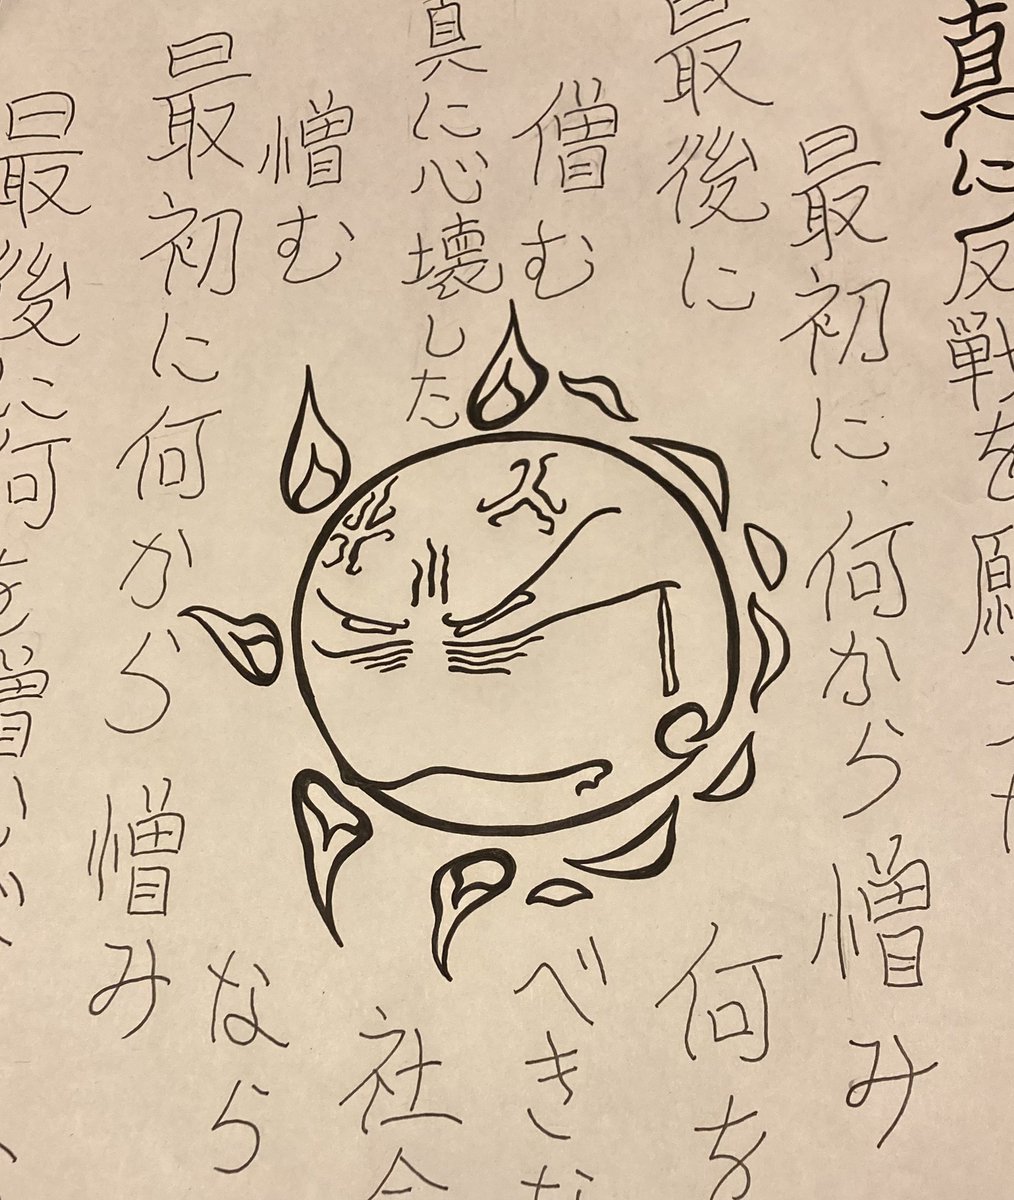 真に反戦を願
最初に何から憎み
最後に何を
僧むべきな
真に心壊した社会
憎むなら
最初に何から憎み
最後に何を憎